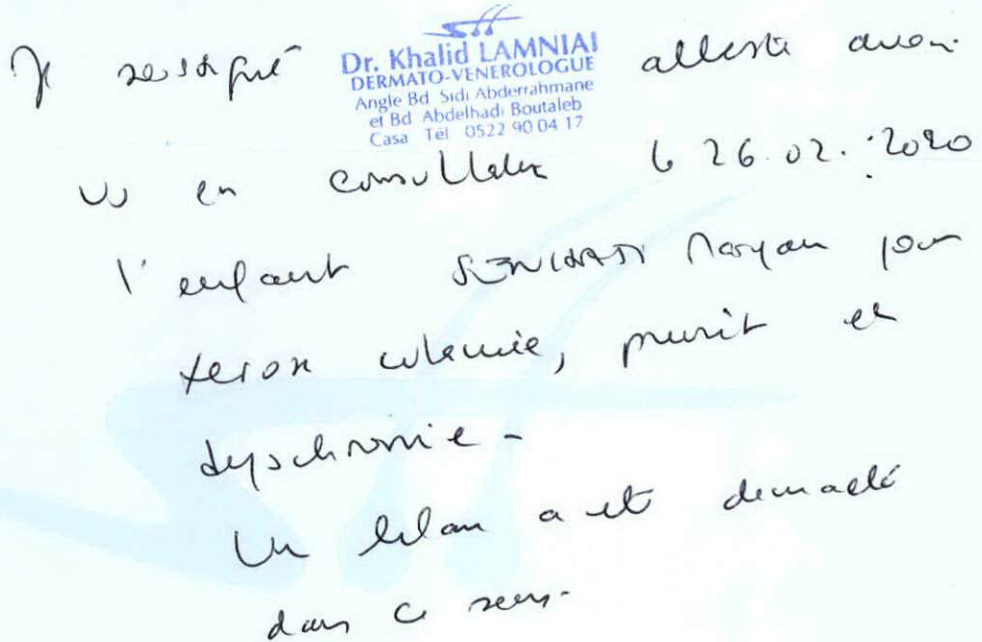 Je soussigné
Dr. Khalid LAMNIAI
DERMATO-VENEROLOGUE
Angle Bd Sidi Abderrahmane
et Bd Abdelhadi Boutaleb
Casa Tél 0522 90 04 17
atteste avoir
vu en consultation le 26.02.2020
l'enfant Maryam pour
xerose cutanée, prurit et
dyschromie -
Un bilan a été demandé
dans ce sens.